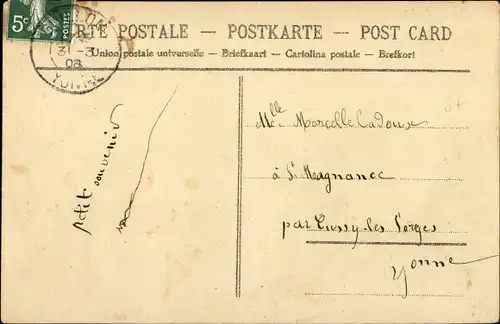 5c POSTES
CARTE POSTALE – POSTKARTE – POST CARD
Union postale universelle – Briefkaart – Cartolina postale – Brefkort
31 -3
08
YONNE
petit souvenir
Mlle Marcelle Cadoux
à St Magnance
par Cussy les Forges
Yonne